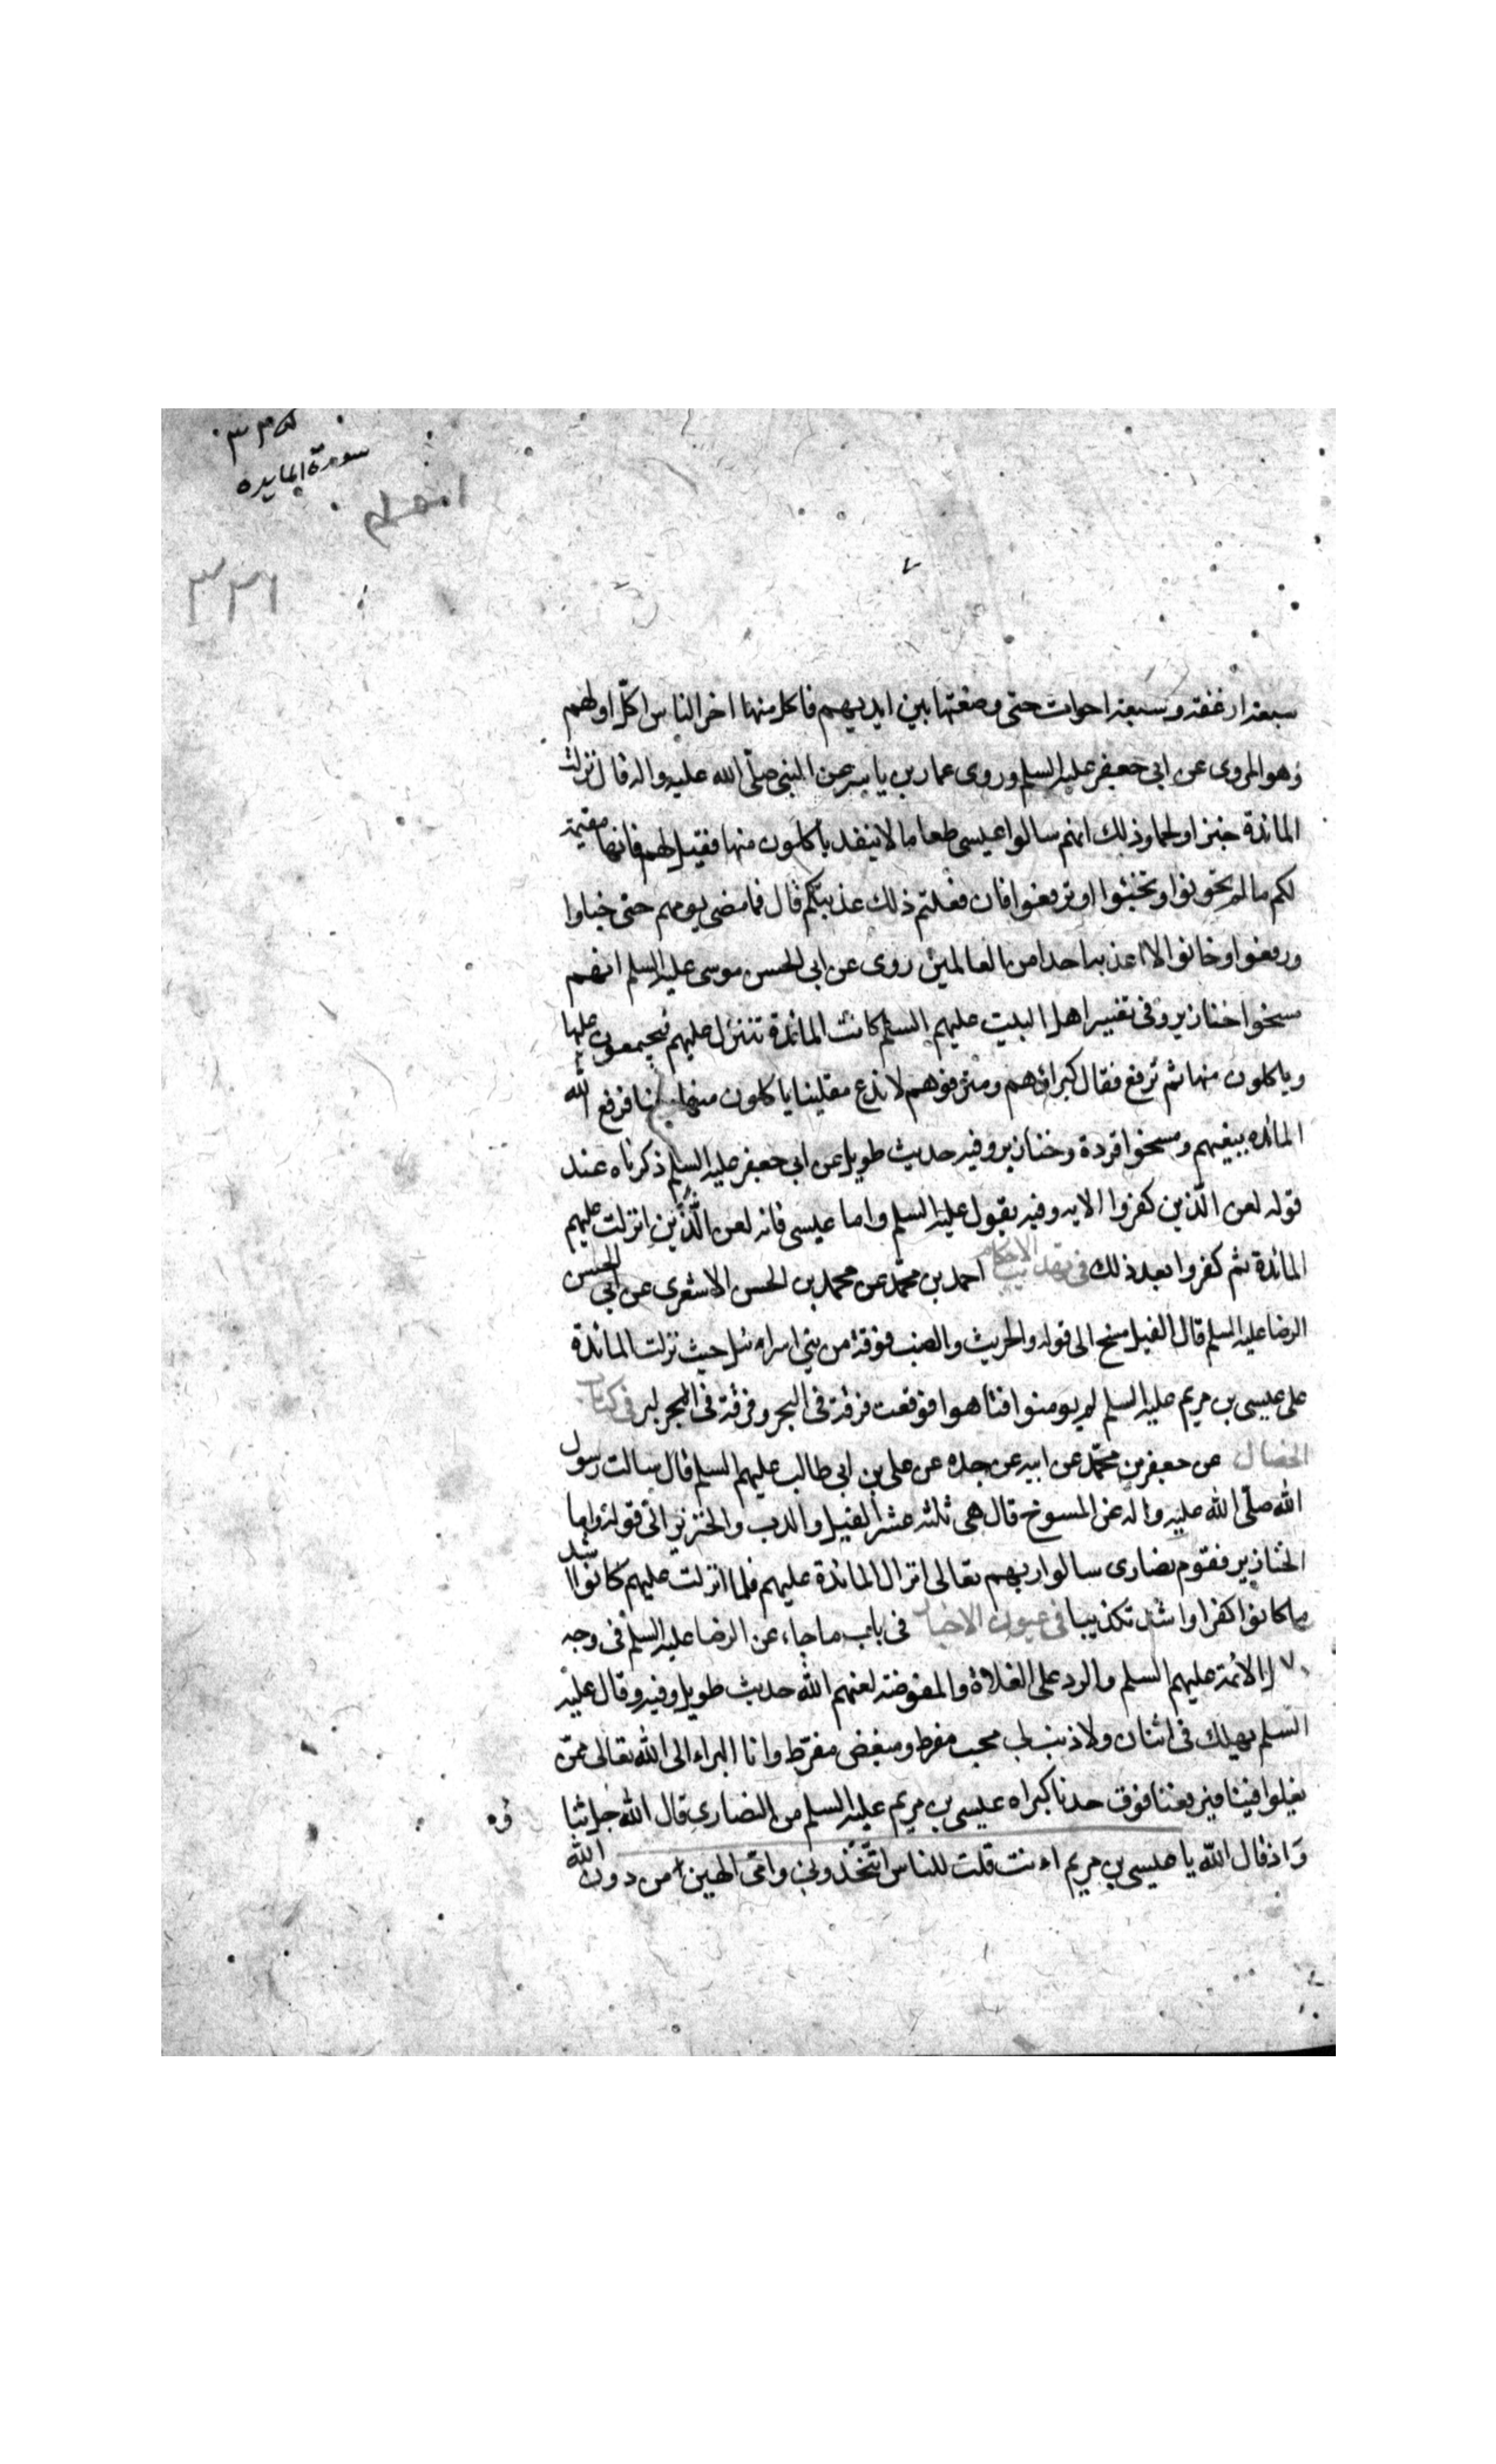 سورة المايده
٣٣١
سبعة ارغفة وسبعة احوات حتى وضعتها بين ايديهم فاكل منها اخر الناس كل اولهم
وهو المروى عن ابى جعفر عليه السلم وروى عمار بن ياسر عن النبى صلّى الله عليه واله قال نزلت
المائدة خبزا ولحما وذلك انهم سالوا عيسى طعاما لا ينفد ياكلون منها فقيل لهم فانها مقيمة
لكم ما لم تخونوا وتخبئوا او ترفعوا فان فعلتم ذلك عذبتكم قال فما مضى يومهم حتى خباوا
ورفعوا وخانوا الا اعذبه احدا من العالمين روى عن ابى الحسن موسى عليه السلم انهم
مسخوا خنازير وفى تفسير اهل البيت عليهم السلم كانت المائدة تتنزل عليهم فيجتمعون عليها
وياكلون منها ثم ترفع فقال كبراؤهم ومترفوهم لا ندع سفلينا ياكلون منها فرفع الله
المائده ببغيهم ومسخوا قردة وخنازير وفيه حديث طويل عن ابى جعفر عليه السلم ذكرناه عند
قوله لعن الّذين كفروا الايه وفيه يقول عليه السلم واما عيسى فانه لعن الّذين انزلت عليهم
المائدة ثم كفروا بعد ذلك فى تهذيب الاحكام احمد بن محمّد عن محمد بن الحسن الاشعرى عن ابى الحسن
الرضا عليه السلم قال الفيل مسخ الى قوله والجريث والضب فرقة من بنى اسراءئيل حيث نزلت المائدة
على عيسى بن مريم عليه السلم لم يومنوا فتاهوا فوقعت فرقة فى البحر وفرقة فى البر فى كتاب
الخصال عن جعفر بن محمّد عن ابيه عن جده عن على بن ابى طالب عليهم السلم قال سالت رسول
الله صلّى الله عليه واله عن المسوخ قال هى ثلثه عشر الفيل والدب والخنزير الى قوله واما
الخنازير فقوم نصارى سالوا ربهم تعالى انزال المائدة عليهم فلما انزلت عليهم كانوا اشد
ما كانوا كفرا واشد تكذيبا فى عيون الاخبار فى باب ما جاء عن الرضا عليه السلم فى وجه
الائمة عليهم السلم والرد على الغلاة والمفوضه لعنهم الله حديث طويل وفيه وقال عليه
السلم يهلك فى اثنان ولا ذنب لى محب مفرط ومبغض مفرّط وانا البراء الى الله تعالى ممّن
يغلوا فينا فيرفعنا فوق حدنا كبراه عيسى بن مريم عليه السلم من النصارى قال الله جل ثنا
وه
وَاذ قال الله يا عيسى بن مريم اءنت قلت للناس اتّخذونى وامّى الهين من دون الله